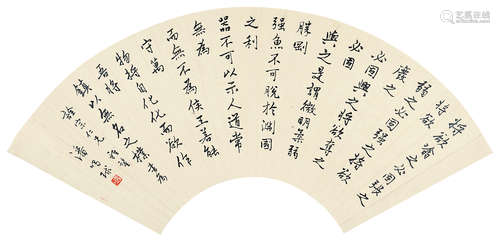 將欲翕之必固張之
將欲
弱之必固強之將欲
廢之
必固興之將欲奪之
必固
與之是謂微明柔弱
勝剛
強魚不可脫於淵國
之利
器不可以示人道常
無為
而無不為侯王若能
守萬
物將自化化而欲作
吾將
鎮以無名之樸書為
宗仁兄雅
潘鳴球